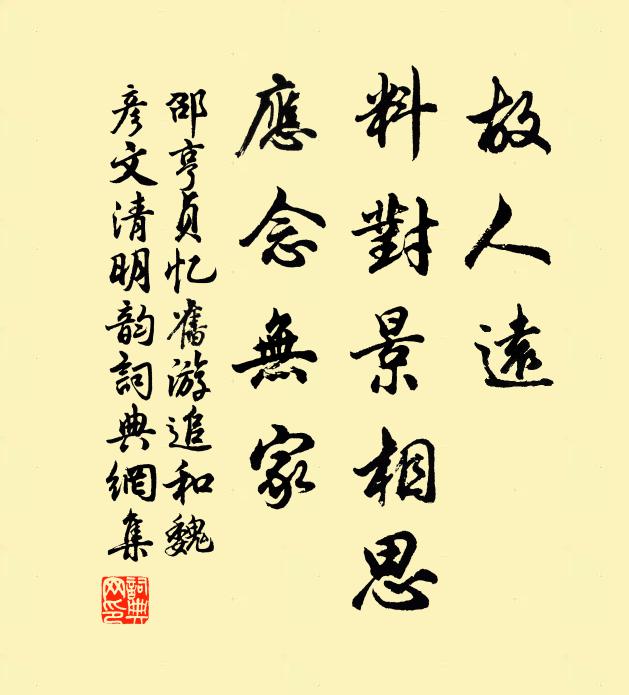 故人遠
料對景相思
應念無家
邵亨貞忆舊游追和魏
彦文清明韵詞典網集
詞典網印